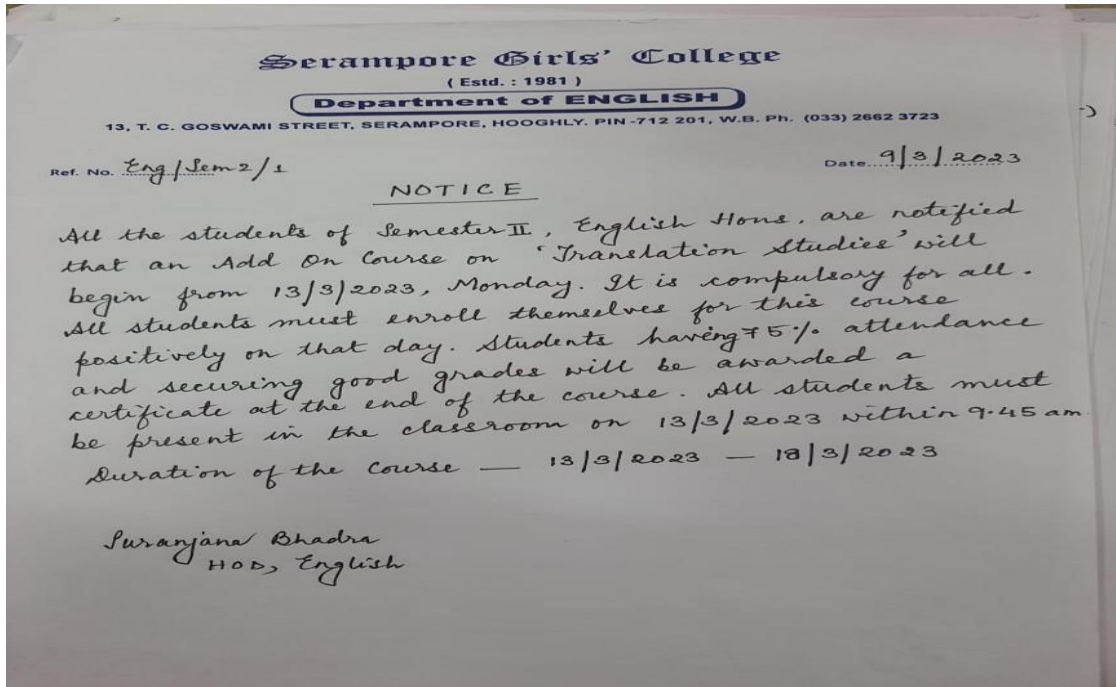 Serampore Girls' College
( Estd. : 1981 )
Department of ENGLISH
13, T. C. GOSWAMI STREET, SERAMPORE, HOOGHLY. PIN -712 201, W.B. Ph. (033) 2662 3723
Ref. No. Eng/Sem2/1 Date. 9/3/2023
NOTICE
All the students of Semester II, English Hons, are notified
that an Add On Course on 'Translation Studies' will
begin from 13/3/2023, Monday. It is compulsory for all.
All students must enroll themselves for this course
positively on that day. Students having 75% attendance
and securing good grades will be awarded a
certificate at the end of the course. All students must
be present in the classroom on 13/3/2023 within 9.45 am
Duration of the Course — 13/3/2023 — 18/3/2023
Suranjana Bhadra
HOD, English